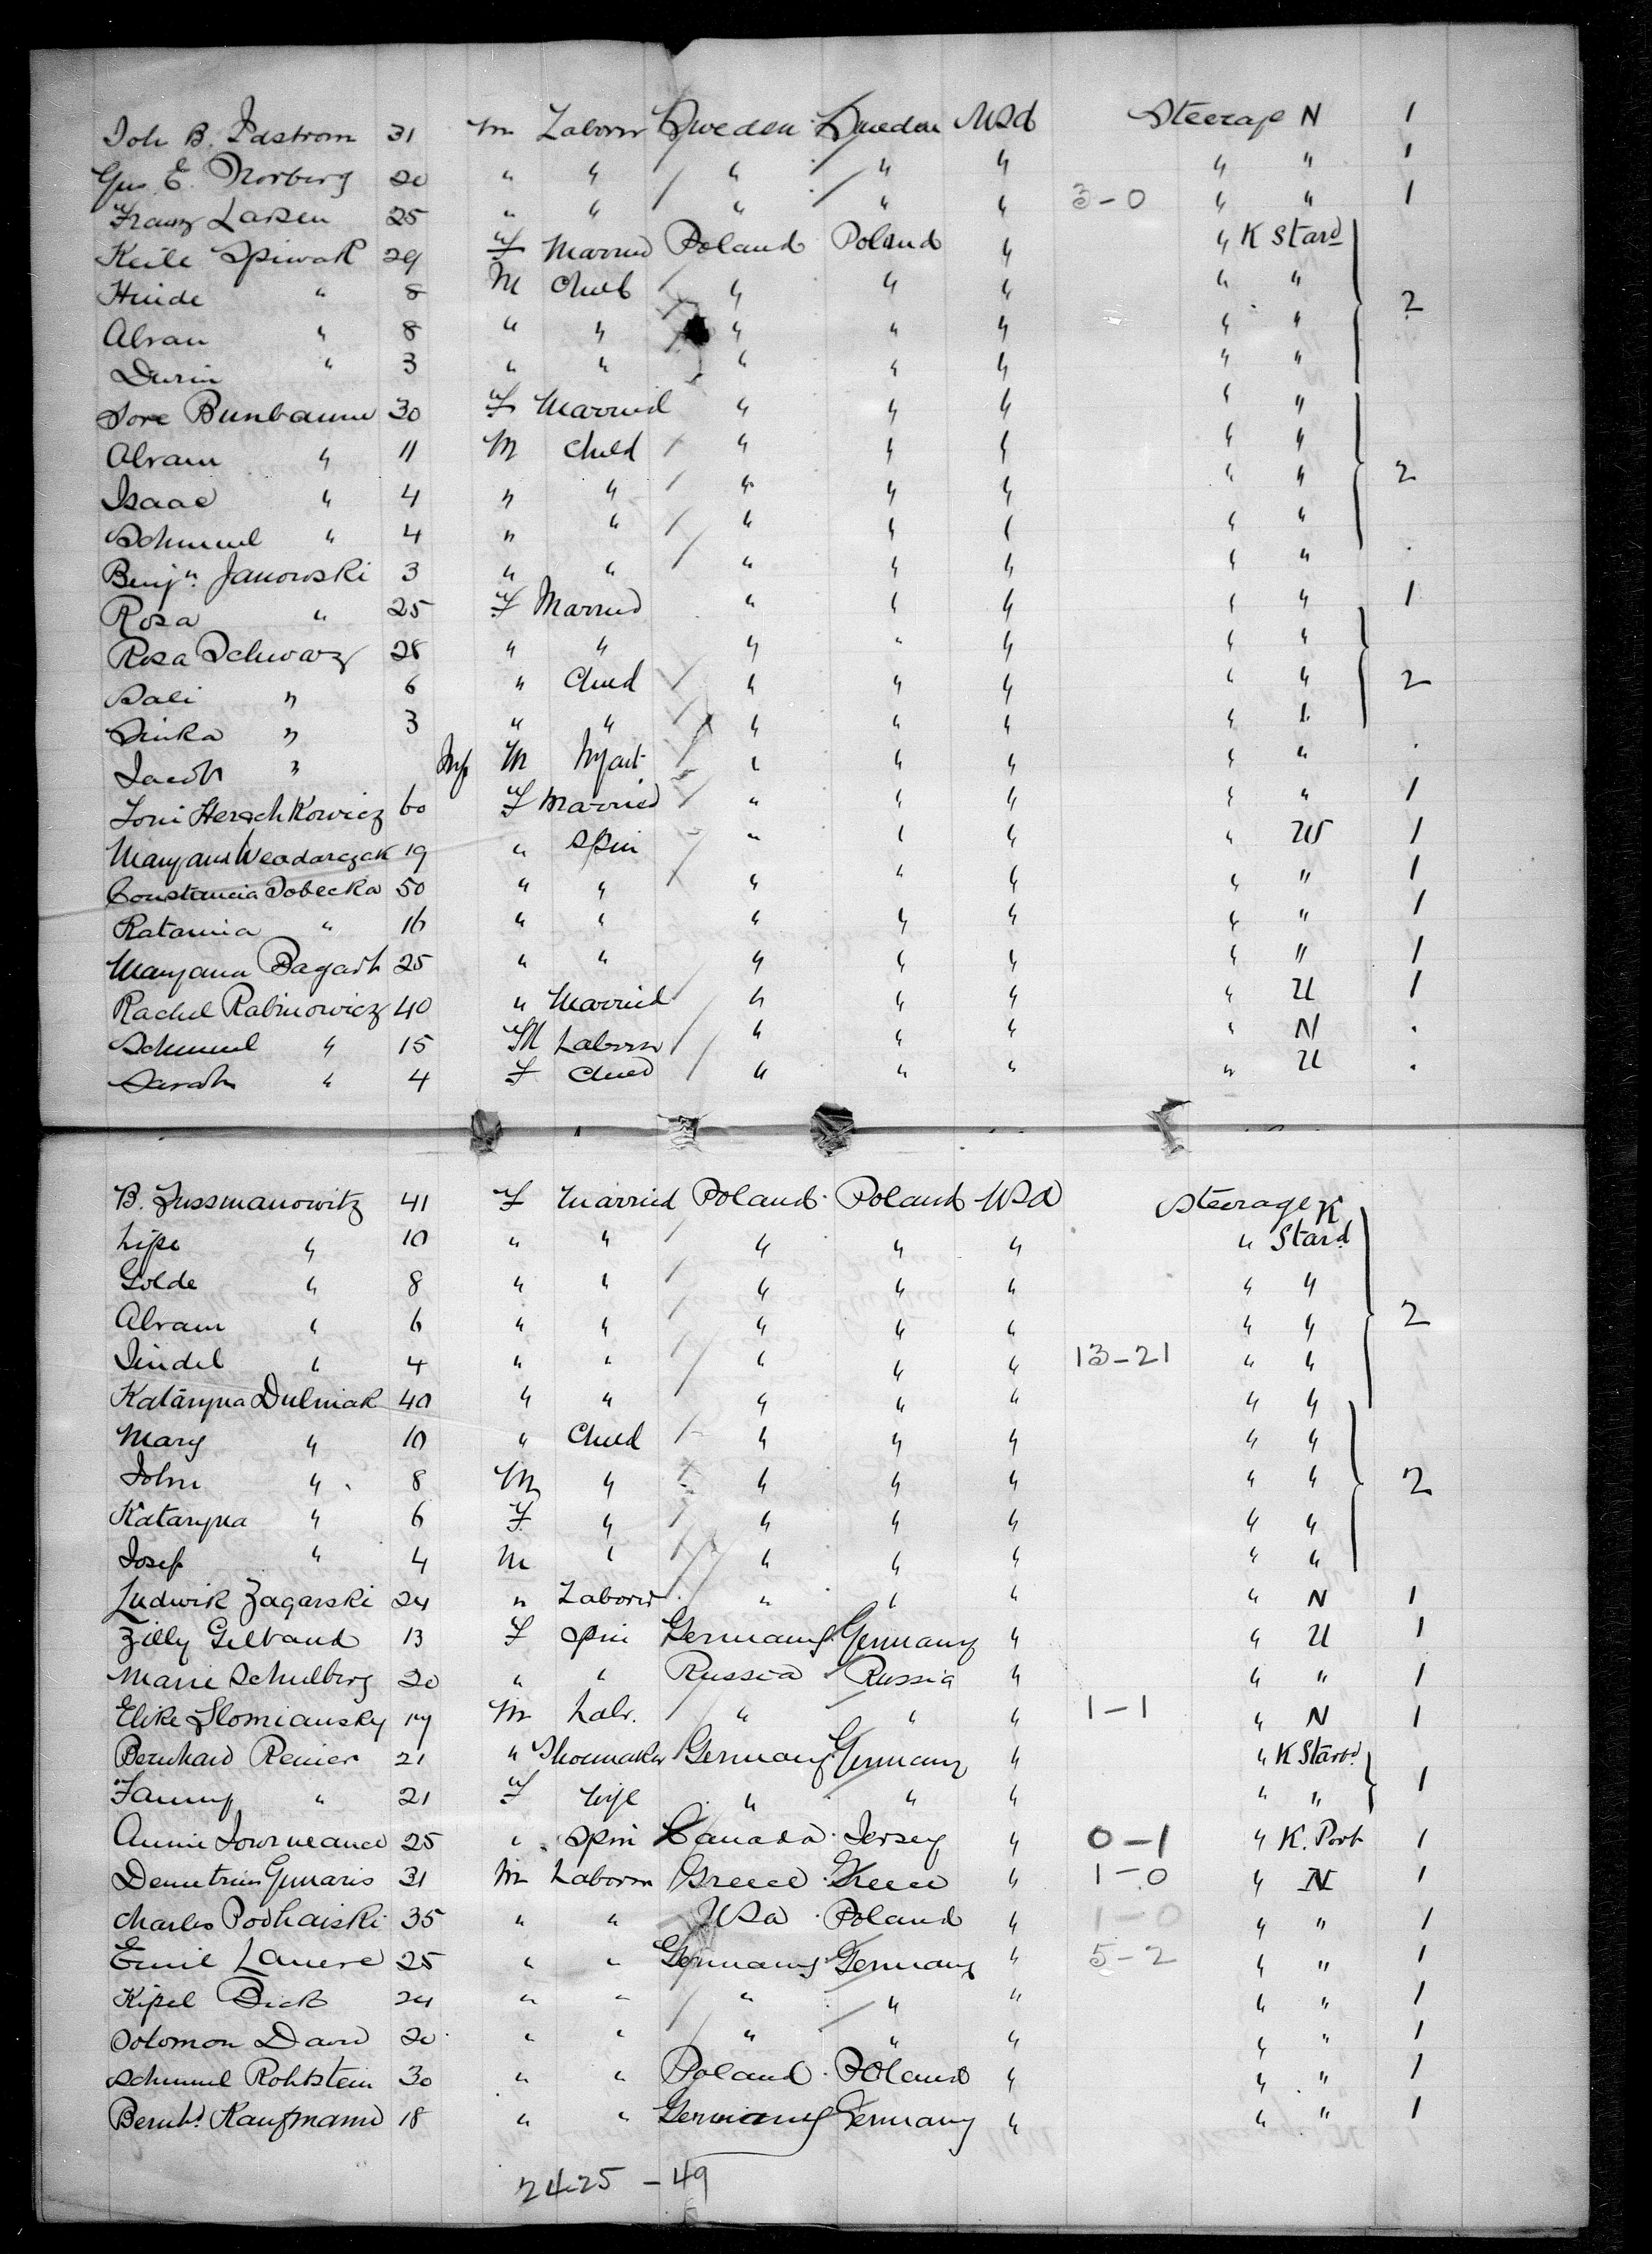 Joh B. Edstrom 31 m Laborer Sweden Sweden USA Steerage N 1
Gus E. Norberg 20 " " " " " " " 1
Franz Larsen 25 " " " " " 3-0 " " 1
Keile Spiwak 29 F Married Poland Poland " " K Stard
Hinde " 8 M Child " " " " " 2
Abram " 8 " " " " " " "
" 3 " " " " " " "
Sore Bunbaum 30 F Married " " " " "
Abram " 11 M Child " " " " " 2
Isaac " 4 " " " " " " "
Schmuel " 4 " " " " " " "
Benjn. Janowski 3 " " " " " " " .
Rosa " 25 F Married " " " " " 1
Rosa Schwarz 28 " " " " " " "
Sali " 6 " Child " " " " " 2
" 3 " " " " " " "
Jacob " Inf M Infant " " " " " .
Toni Herschkowicz 60 F Married " " " " " 1
Maryana Weodarczak 19 " Spin " " " " W 1
Constancia Sobecka 50 " " " " " " " 1
Katarina " 16 " " " " " " " 1
Maryana 25 " " " " " " " 1
Rachel Rabinowicz 40 " Married " " " " U 1
Schmuel " 15 M Laborer " " " " N .
Sarah " 4 F Child " " " " U .
B. Sussmanowitz 41 F Married Poland Poland USA Steerage K
Lipe " 10 " " " " " " Stard
Golde " 8 " " " " " " "
Abram " 6 " " " " " " " 2
" 4 " " " " " 13-21 " "
Kataryna Dulniak 40 " " " " " " "
Mary " 10 " Child " " " " "
John " 8 M " " " " " " 2
Kataryna " 6 F " " " " " "
Josef " 4 M " " " " " "
Ludwik Zagarski 24 " Laborer " " " " N 1
Zilly Gelband 13 F Spin Germany Germany " " U 1
Marie Schulberg 20 " " Russia Russia " " " 1
Elike Slomiansky 17 M Labr. " " " 1-1 " N 1
Bernhard Reiner 21 " Shoemaker Germany Germany " " K Starbd
Fanny " 21 F Wife " " " " " 1
Annie 25 " Spin Canada Jersey " 0-1 " K. Port 1
Demetrius Gunaris 31 M Laborer Greece Greece " 1-0 " N 1
Charles Podhaiski 35 " " USa Poland " 1-0 " " 1
Emil 25 " " Germany Germany " 5-2 " " 1
Kipel 24 " " " " " " " 1
Solomon David 20 " " " " " " " 1
Schmuel Rohtstein 30 " " Poland Poland " " " 1
Bernhd. Kaufmann 18 " " Germany Germany " " " 1
24-25 - 49